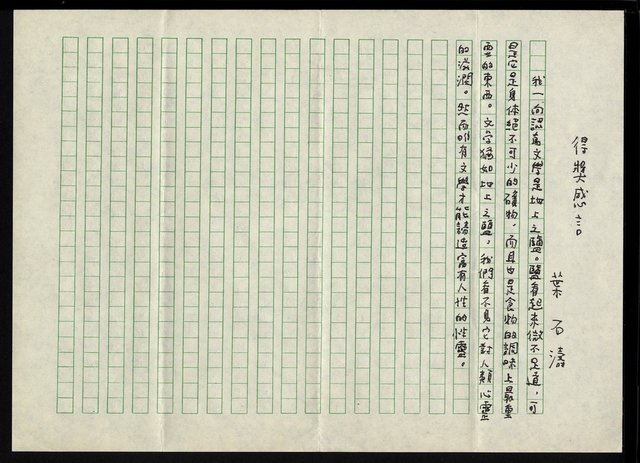 得獎感言
葉石濤
我一向認為文學是地上之鹽。鹽看起來微不足道，可
是它是身体絕不可少的礦物，而且也是食物的調味上最重
要的東西。文学猶如地上之鹽，我們看不見它對人類心靈
的滋潤。然而唯有文學才能鑄造富有人性的性靈。